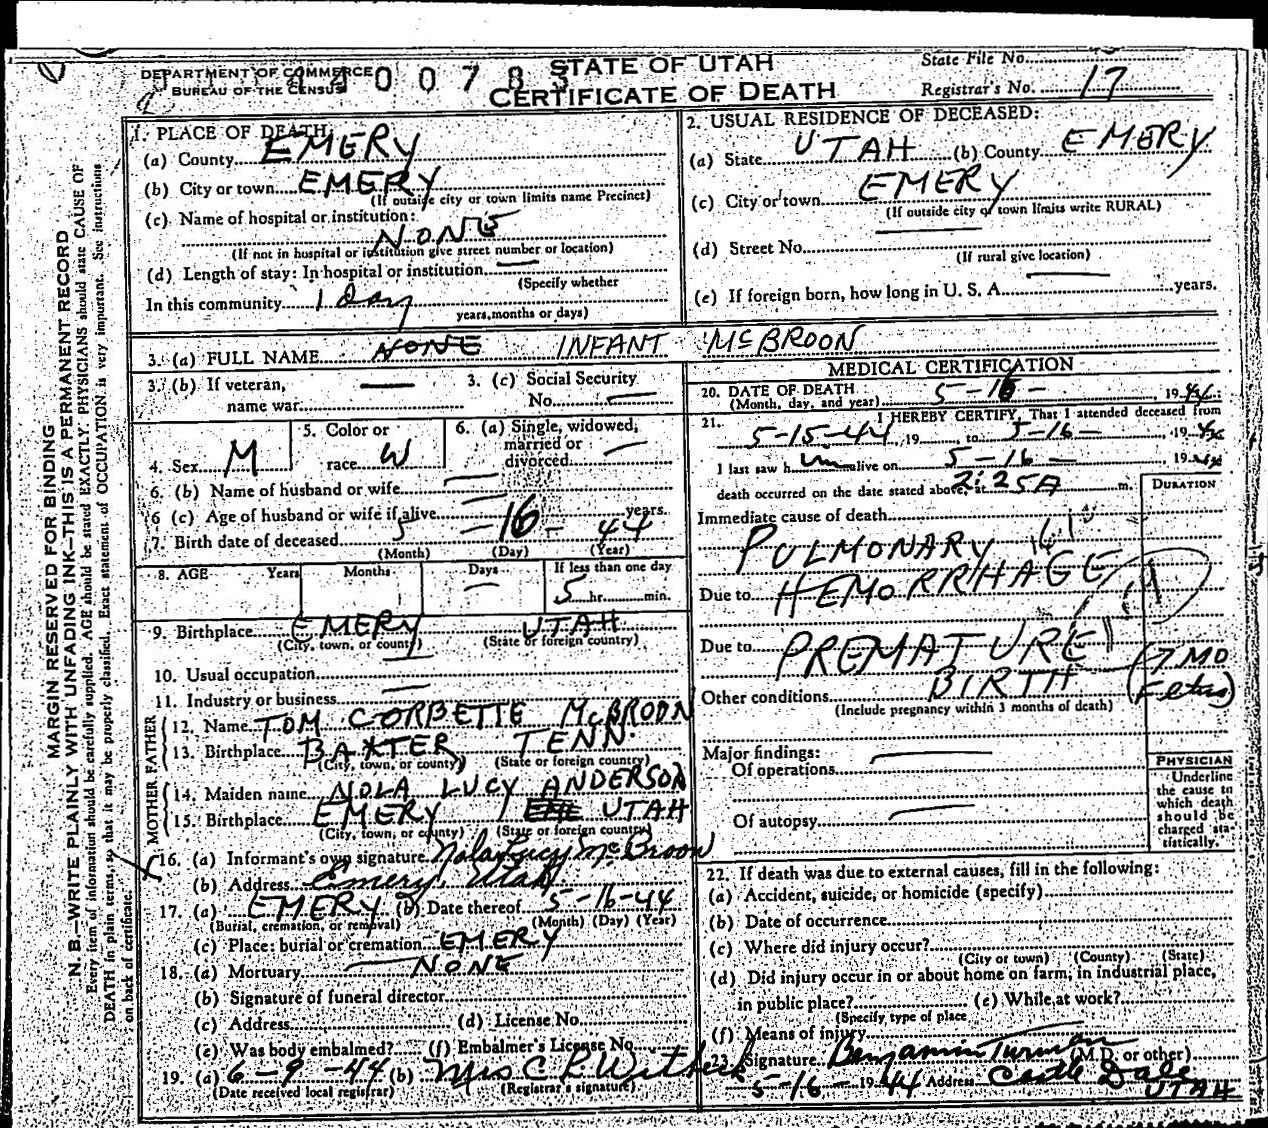 DEPARTMENT OF COMMERCE
BUREAU OF THE CENSUS
4400783
STATE OF UTAH
CERTIFICATE OF DEATH
State File No.
Registrar's No. 17
MARGIN RESERVED FOR BINDING
N. B.—WRITE PLAINLY WITH UNFADING INK—THIS IS A PERMANENT RECORD
Every item of information should be carefully supplied. AGE should be stated EXACTLY. PHYSICIANS should state CAUSE OF
DEATH in plain terms, so that it may be properly classified. Exact statement of OCCUPATION is very important. See instructions
on back of certificate.
1. PLACE OF DEATH
(a) County EMERY
(b) City or town EMERY
(If outside city or town limits name Precinct)
(c) Name of hospital or institution:
NONE
(If not in hospital or institution give street number or location)
(d) Length of stay: In hospital or institution
(Specify whether
In this community 1 day
years, months or days)
2. USUAL RESIDENCE OF DECEASED:
(a) State UTAH (b) County EMERY
(c) City or town EMERY
(If outside city or town limits write RURAL)
(d) Street No.
(If rural give location)
(e) If foreign born, how long in U. S. A. years.
3. (a) FULL NAME NONE INFANT McBROON
3. (b) If veteran,
name war
3. (c) Social Security
No.
4. Sex M
5. Color or
race W
6. (a) Single, widowed,
married or
divorced
6. (b) Name of husband or wife
6 (c) Age of husband or wife if alive years.
7. Birth date of deceased 5 - 16 - 44
(Month) (Day) (Year)
8. AGE Years Months Days If less than one day
5 hr. min.
9. Birthplace EMERY UTAH
(City, town, or county) (State or foreign country)
10. Usual occupation
11. Industry or business
FATHER
12. Name TOM CORBETTE McBROON
13. Birthplace BAXTER TENN.
(City, town, or county) (State or foreign country)
MOTHER
14. Maiden name NOLA LUCY ANDERSON
15. Birthplace EMERY UTAH
(City, town, or county) (State or foreign country)
16. (a) Informant's own signature Nola Lucy McBroon
(b) Address Emery, Utah
17. (a) EMERY (b) Date thereof 5-16-44
(Burial, cremation, or removal) (Month) (Day) (Year)
(c) Place: burial or cremation EMERY
18. (a) Mortuary NONE
(b) Signature of funeral director
(c) Address (d) License No.
(e) Was body embalmed? (f) Embalmer's License No.
19. (a) 6-9-44 (b) Mrs C R
(Date received local registrar) (Registrar's signature)
MEDICAL CERTIFICATION
20. DATE OF DEATH 5-16- 1944
(Month, day, and year)
21. I HEREBY CERTIFY, That I attended deceased from
5-15-44, 19 to 5-16- , 1944
I last saw him alive on 5-16- 1944
death occurred on the date stated above, at 2:25A m.
DURATION
Immediate cause of death
PULMONARY
Due to HEMORRHAGE
Due to PREMATURE
BIRTH (7 MO
Fetus)
Other conditions
(Include pregnancy within 3 months of death)
Major findings:
Of operations
Of autopsy
PHYSICIAN
Underline
the cause to
which death
should be
charged sta-
tistically.
22. If death was due to external causes, fill in the following:
(a) Accident, suicide, or homicide (specify)
(b) Date of occurrence
(c) Where did injury occur?
(City or town) (County) (State)
(d) Did injury occur in or about home on farm, in industrial place,
in public place? (e) While at work?
(Specify type of place
(f) Means of injury
23. Signature Benjamin Turman (M.D. or other)
5-16- 1944 Address Castle Dale
UTAH